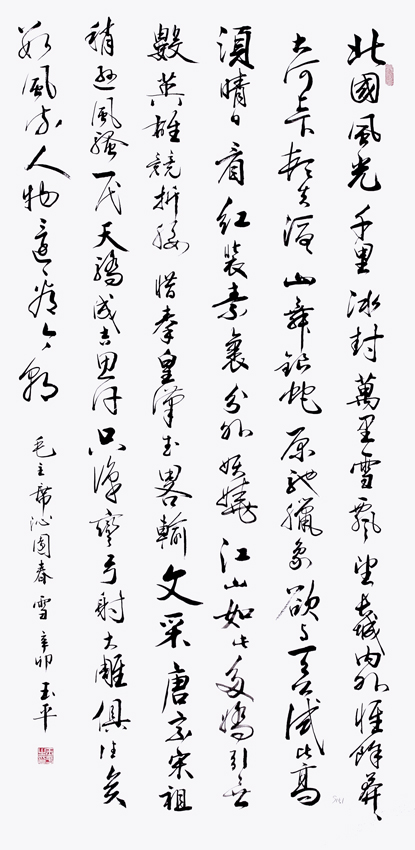 北國風光千里冰封萬里雪飄望長城內外惟餘莽々
大河上下頓失滔々山舞銀蛇原馳臘象欲与天公試比高
須晴日看紅裝素裹分外妖嬈江山如此多嬌引無
數英雄競折腰惜秦皇漢武畧輸文采唐宗宋祖
稍遜風騷一代天驕成吉思汗只識彎弓射大雕俱往矣
數風流人物還看今朝
毛主席沁園春雪辛卯玉平